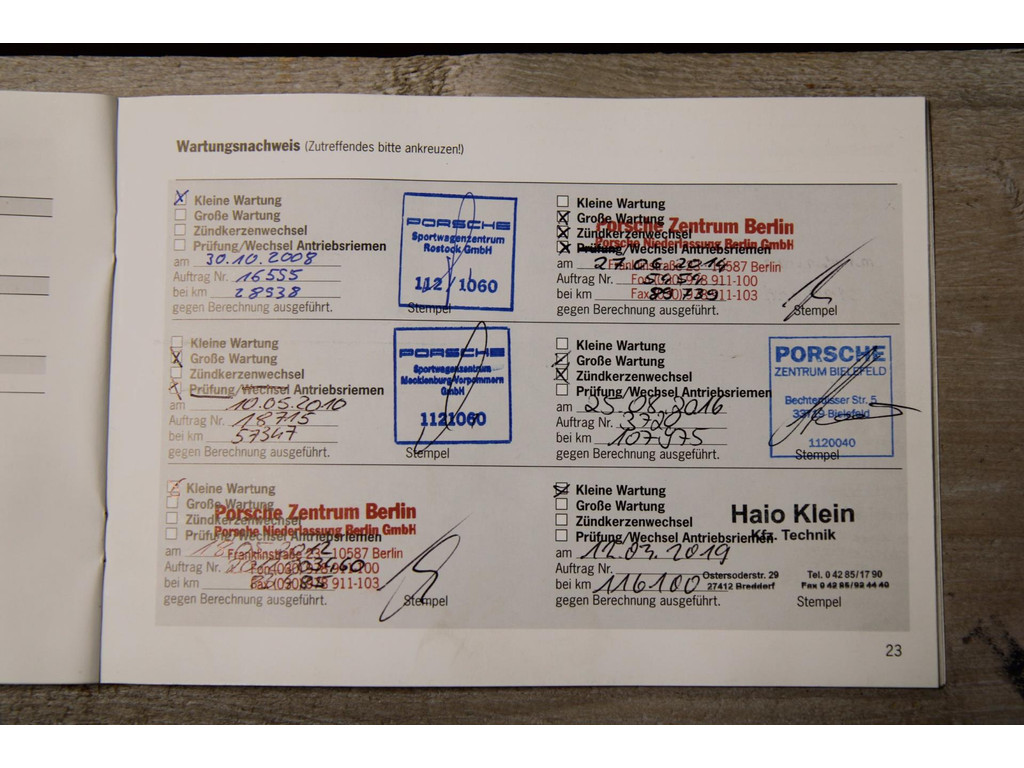 Wartungsnachweis (Zutreffendes bitte ankreuzen!)
Kleine Wartung
Große Wartung
Zündkerzenwechsel
Prüfung/Wechsel Antriebsriemen
am 30.10.2008
Auftrag Nr. 16555
bei km 28938
gegen Berechnung ausgeführt.
PORSCHE
Sportwagenzentrum
Rostock GmbH
112 1060
Stempel
Kleine Wartung
Große Wartung
Zündkerzenwechsel
Prüfung/Wechsel Antriebsriemen
am 10.05.2010
Auftrag Nr. 18775
bei km 57347
gegen Berechnung ausgeführt.
PORSCHE
Sportwagenzentrum
Mecklenburg-Vorpommern
GmbH
1121060
Stempel
Kleine Wartung
Große Wartung
Zündkerzenwechsel
Prüfung/Wechsel Antriebsriemen
am
Auftrag Nr.
bei km
gegen Berechnung ausgeführt.
Porsche Zentrum Berlin
Porsche Niederlassung Berlin GmbH
Franklinstraße 23 10587 Berlin
Fon (030) 9 911-100
Fax (030) 9 911-103
Stempel
Kleine Wartung
Große Wartung
Zündkerzenwechsel
Prüfung/Wechsel Antriebsriemen
am 27.06.2014
Auftrag Nr.
bei km 89739
gegen Berechnung ausgeführt.
Porsche Zentrum Berlin
Porsche Niederlassung Berlin GmbH
Franklinstraße 23 10587 Berlin
911-100
911-103
Stempel
Kleine Wartung
Große Wartung
Zündkerzenwechsel
Prüfung/Wechsel Antriebsriemen
am 25.08.2016
Auftrag Nr. 3720
bei km 107975
gegen Berechnung ausgeführt.
PORSCHE
ZENTRUM BIELEFELD
Bechterdisser Str. 5
33719 Bielefeld
1120040
Stempel
Kleine Wartung
Große Wartung
Zündkerzenwechsel
Prüfung/Wechsel Antriebsriemen
am 12.03.2019
Auftrag Nr.
bei km 116100
gegen Berechnung ausgeführt.
Haio Klein
Kfz. Technik
Ostersoderstr. 29
27412 Breddorf
Tel. 0 42 85/17 90
Fax 0 42 85/92 44 40
Stempel
23